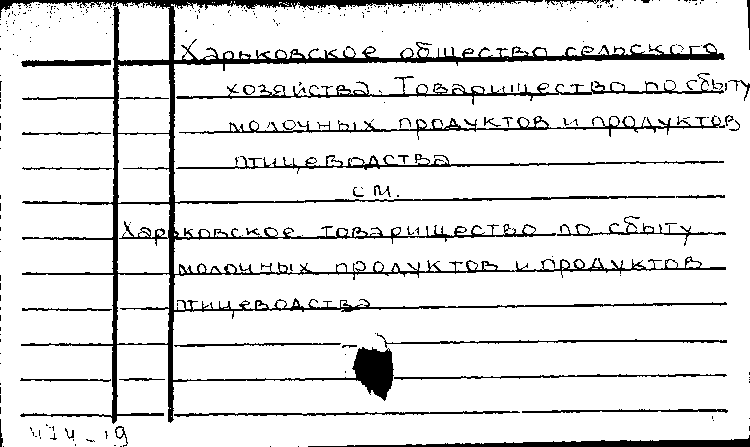 Харьковское общество сельского
хозяйства. Товарищество по сбыту
молочных продуктов и продуктов
птицеводства
см.
Харьковское товарищество по сбыту
молочных продуктов и продуктов
птицеводства
474-19